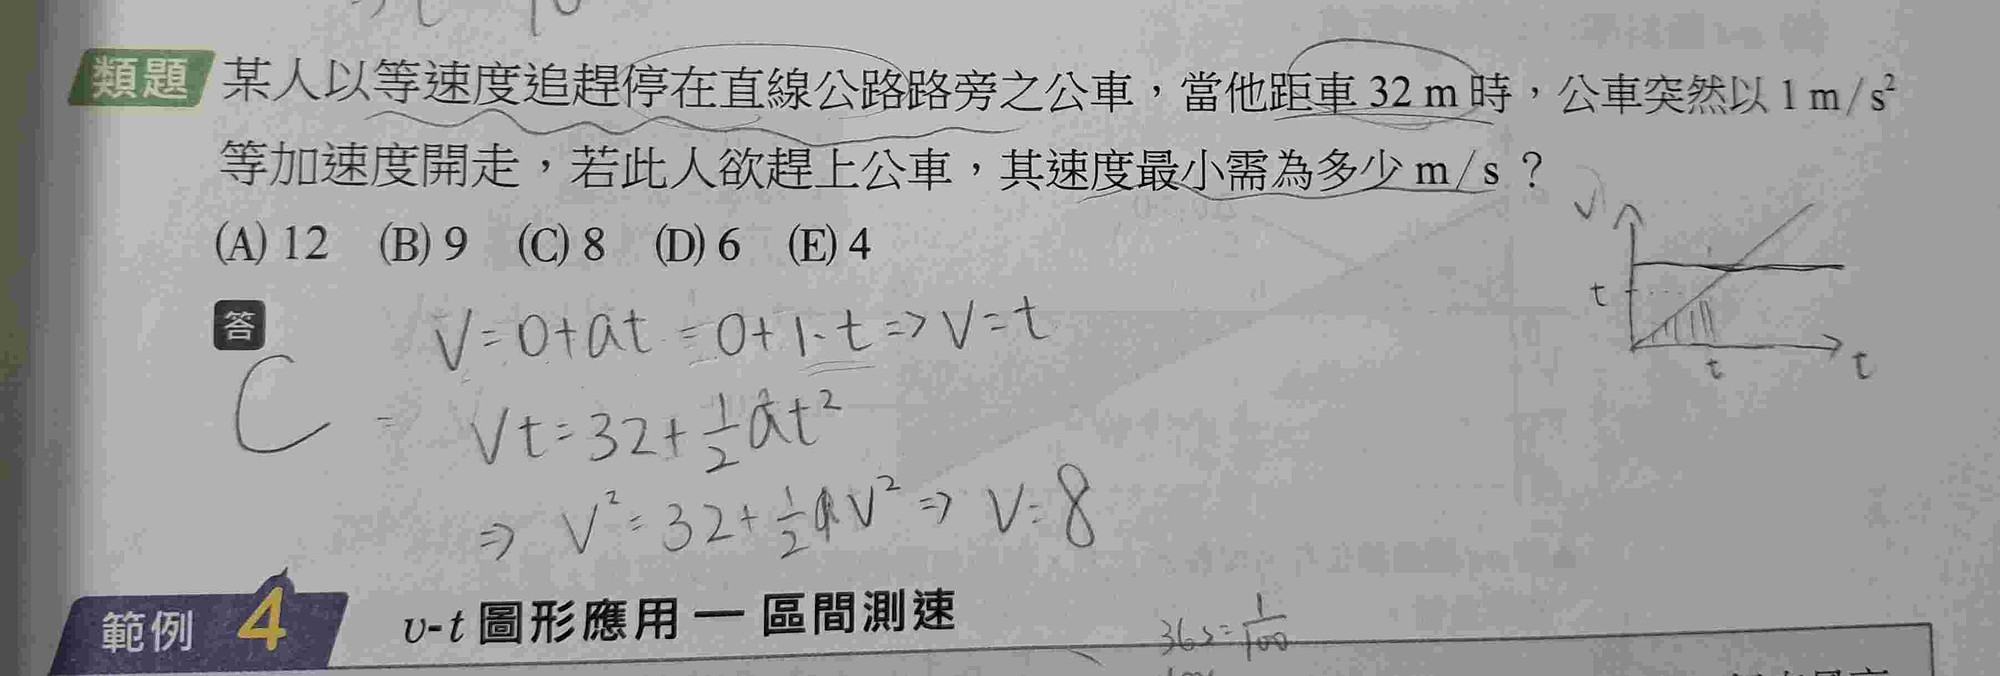 類題 某人以等速度追趕停在直線公路路旁之公車，當他距車 32 m 時，公車突然以 1 m/s²
等加速度開走，若此人欲趕上公車，其速度最小需為多少 m/s？
(A) 12 (B) 9 (C) 8 (D) 6 (E) 4
答
C
V=0+at=0+1·t⇒V=t
Vt=32+1/2at²
⇒V²=32+1/2V²⇒V=8
V
t
t
t
範例 4 v-t 圖形應用－區間測速
36s=1/100